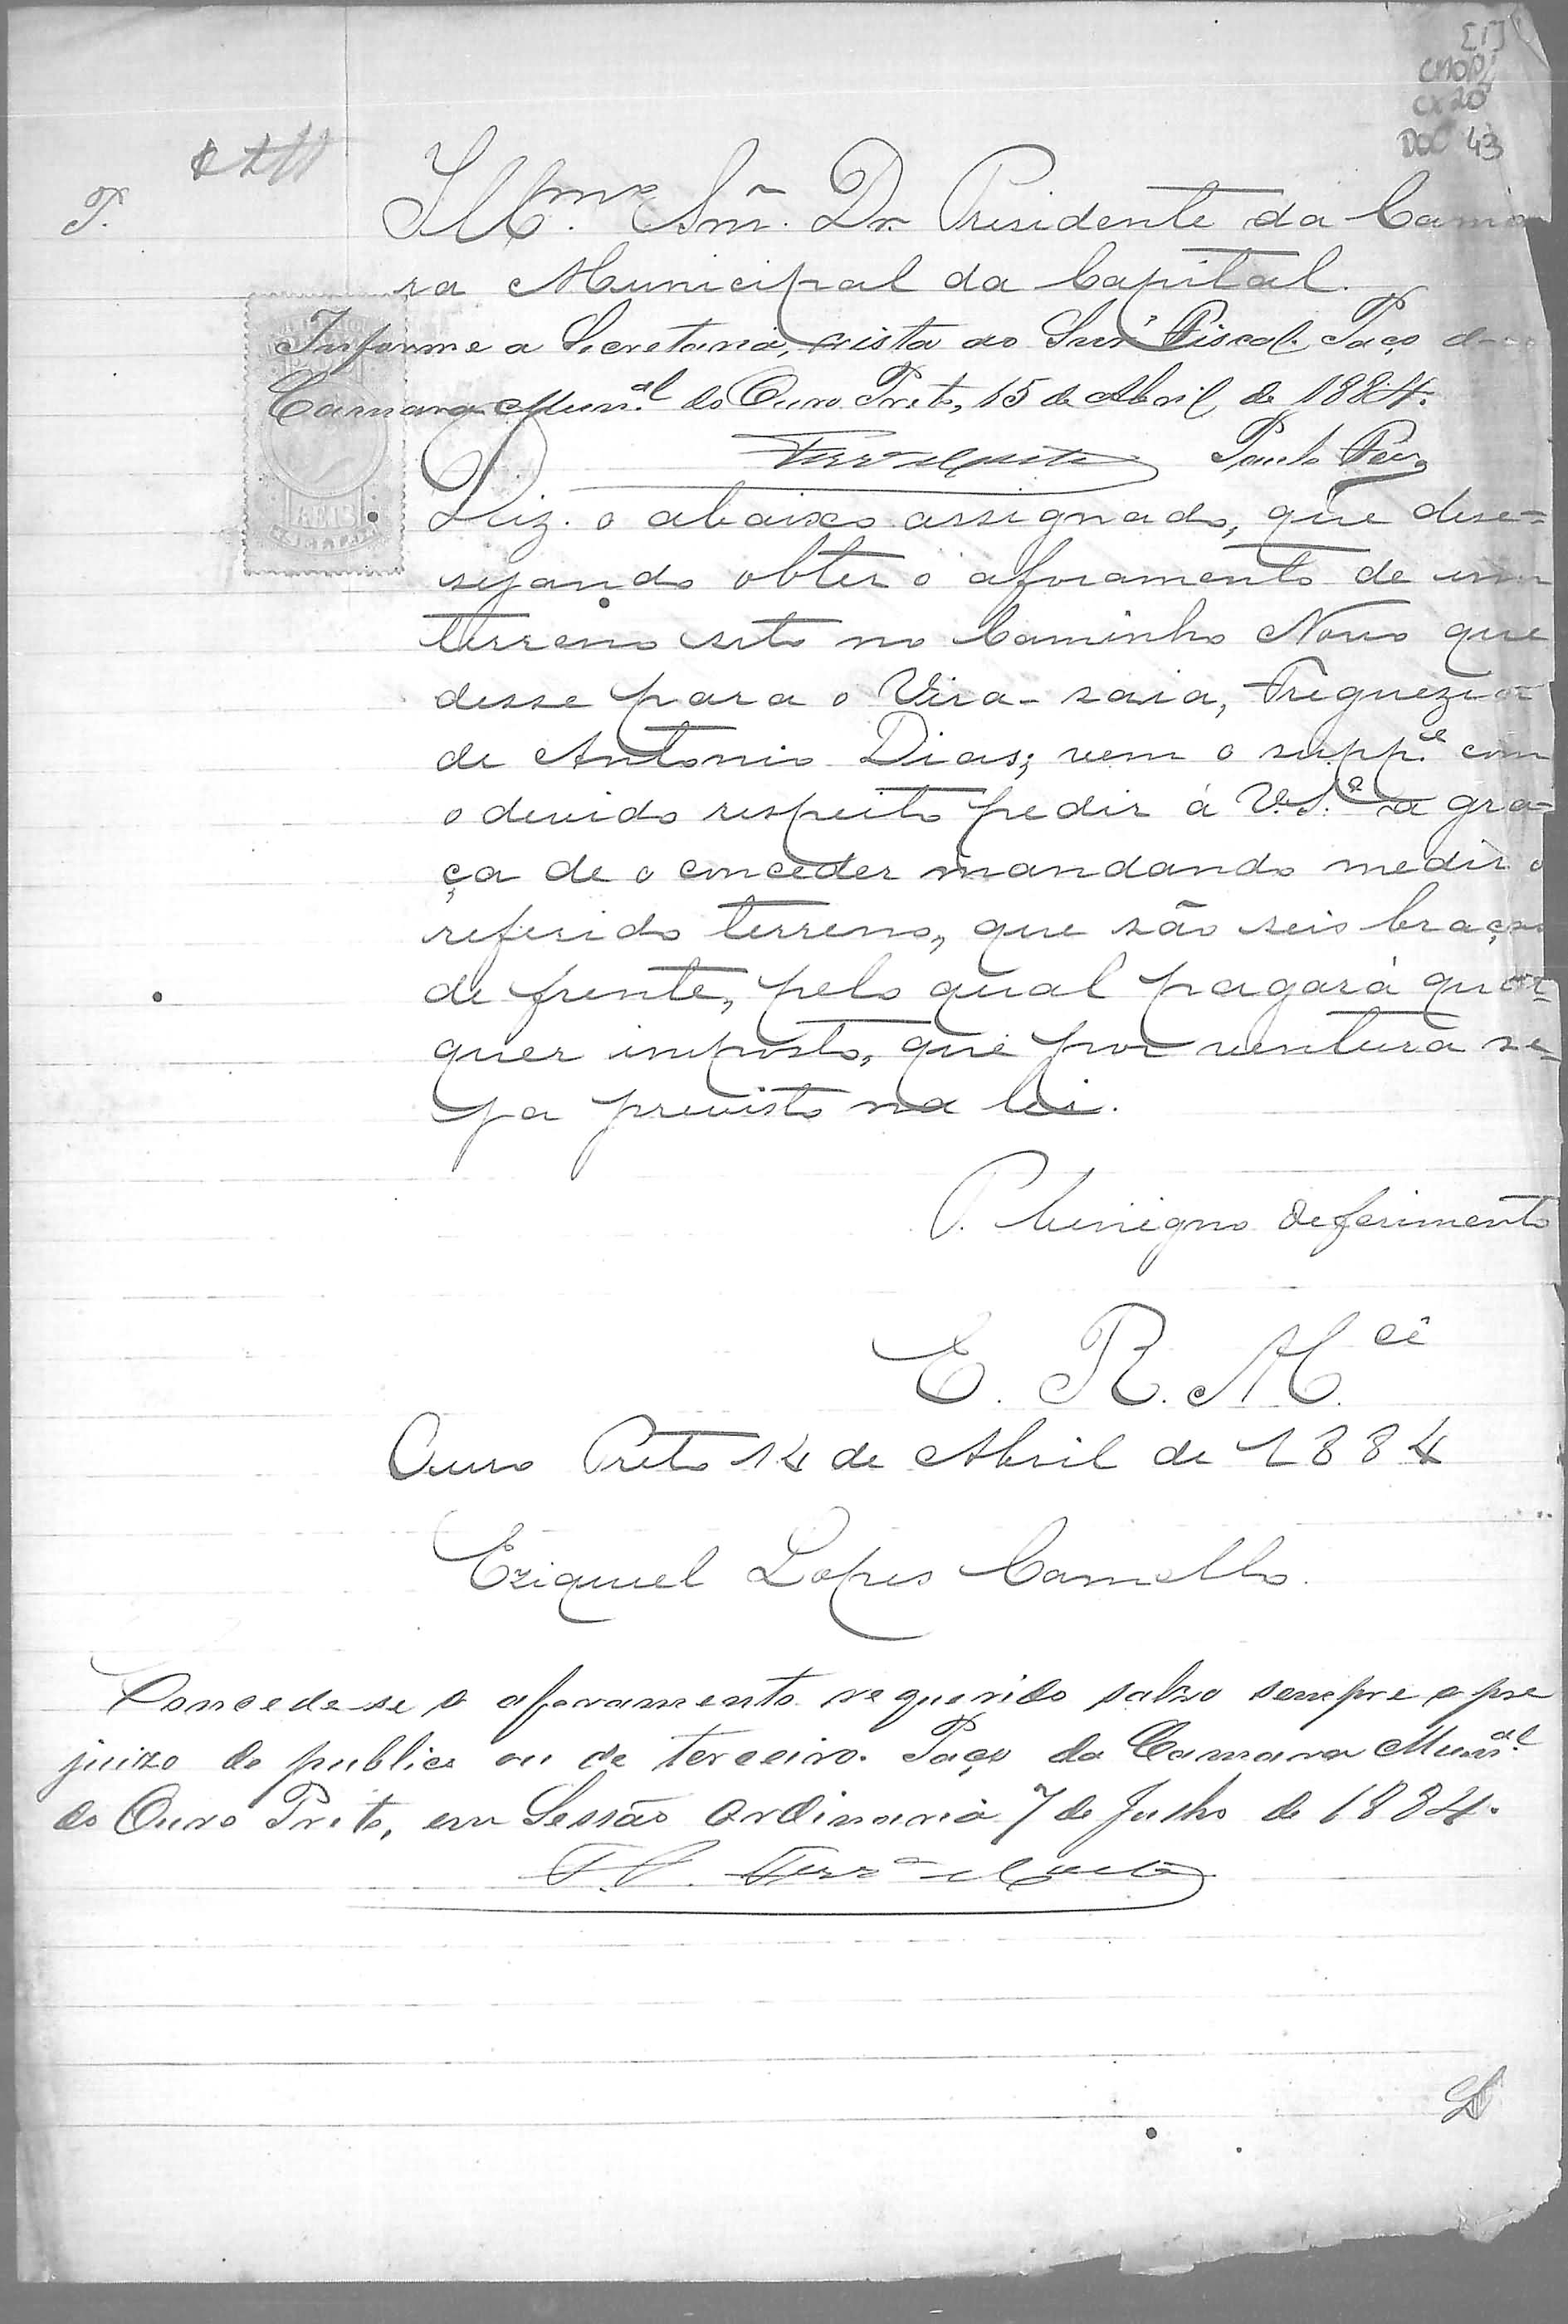 [1]
CMOP/
CX 20
DOC 43
P.
Illmo. Snr. Dr. Presidente da Cama
ra Municipal da Capital.
Informe a Secretaria, vista ao Snr Fiscal. Paço da
Camara Munal do Ouro Preto, 15 de Abril de 1884.
Diz o abaixo assignado, que dese=
sejando obter o aforamento de um
terreno sito no Caminho Novo que
desse para o Vira-saia, Freguezia
de Antonio Dias; vem o suppe. com
o devido respeito pedir á V.S.ª a gra=
ça de o conceder mandando medir o
referido terreno, que são seis braças
de frente, pelo qual pagará qual=
quer imposto, que por ventura se=
ja previsto na lei.
P. benigno deferimento
E. R. Mcê
Ouro Preto 14 de Abril de 1884
Eziquiel Lopes Camello.
Concede-se o aforamento requerido salvo sempre o pre
juizo do publico ou de terceiro. Paço da Camara Munal
do Ouro Preto, em Sessão ordinaria 7 de Julho de 1884.